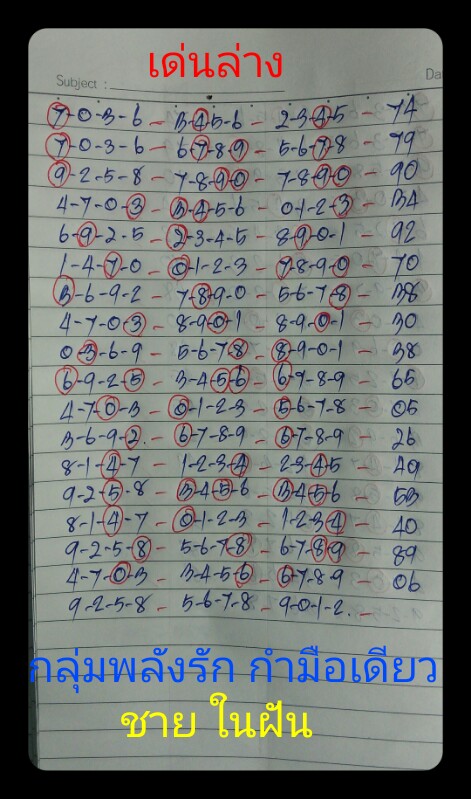 เด่นล่าง
Subject :
Da
7-0-3-6 - 3-4-5-6 - 2-3-4-5 - 74
7-0-3-6 - 6-7-8-9 - 5-6-7-8 - 79
9-2-5-8 - 7-8-9-0 - 7-8-9-0 - 90
4-7-0-3 - 3-4-5-6 - 0-1-2-3 - 34
6-9-2-5 - 2-3-4-5 - 8-9-0-1 - 92
1-4-7-0 - 0-1-2-3 - 7-8-9-0 - 70
3-6-9-2 - 7-8-9-0 - 5-6-7-8 - 38
4-7-0-3 - 8-9-0-1 - 8-9-0-1 - 30
0-3-6-9 - 5-6-7-8 - 8-9-0-1 - 38
6-9-2-5 - 3-4-5-6 - 6-7-8-9 - 65
4-7-0-3 - 0-1-2-3 - 5-6-7-8 - 05
3-6-9-2 - 6-7-8-9 - 6-7-8-9 - 26
8-1-4-7 - 1-2-3-4 - 2-3-4-5 - 49
9-2-5-8 - 3-4-5-6 - 3-4-5-6 - 53
8-1-4-7 - 0-1-2-3 - 1-2-3-4 - 40
9-2-5-8 - 5-6-7-8 - 6-7-8-9 - 89
4-7-0-3 - 3-4-5-6 - 6-7-8-9 - 06
9-2-5-8 - 5-6-7-8 - 9-0-1-2 -
กลุ่มพลังรัก กำมือเดียว
ชาย ในฝัน